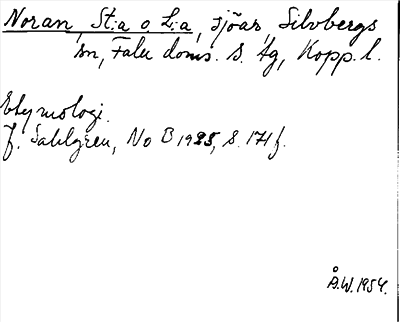 Noran, St:a o. L:a, sjöar, Silvbergs
sn, Falu doms. s. tg, Kopp. l.
Etymologi.
J. Sahlgren, No B 1935, s. 171 f.
Å.W. 1954.